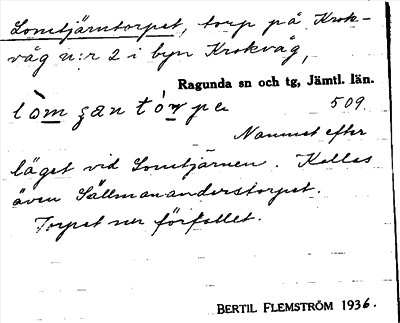 Lomtjärntorpet, torp på Krok-
våg n:r 2 i byn Krokvåg,
Ragunda sn och tg, Jämtl. län.
509.
Namnet efter
läget vid Lomtjärnen. Kallas
även Sällmananderstorpet.
Torpet nu förfallet.
BERTIL FLEMSTRÖM 1936.